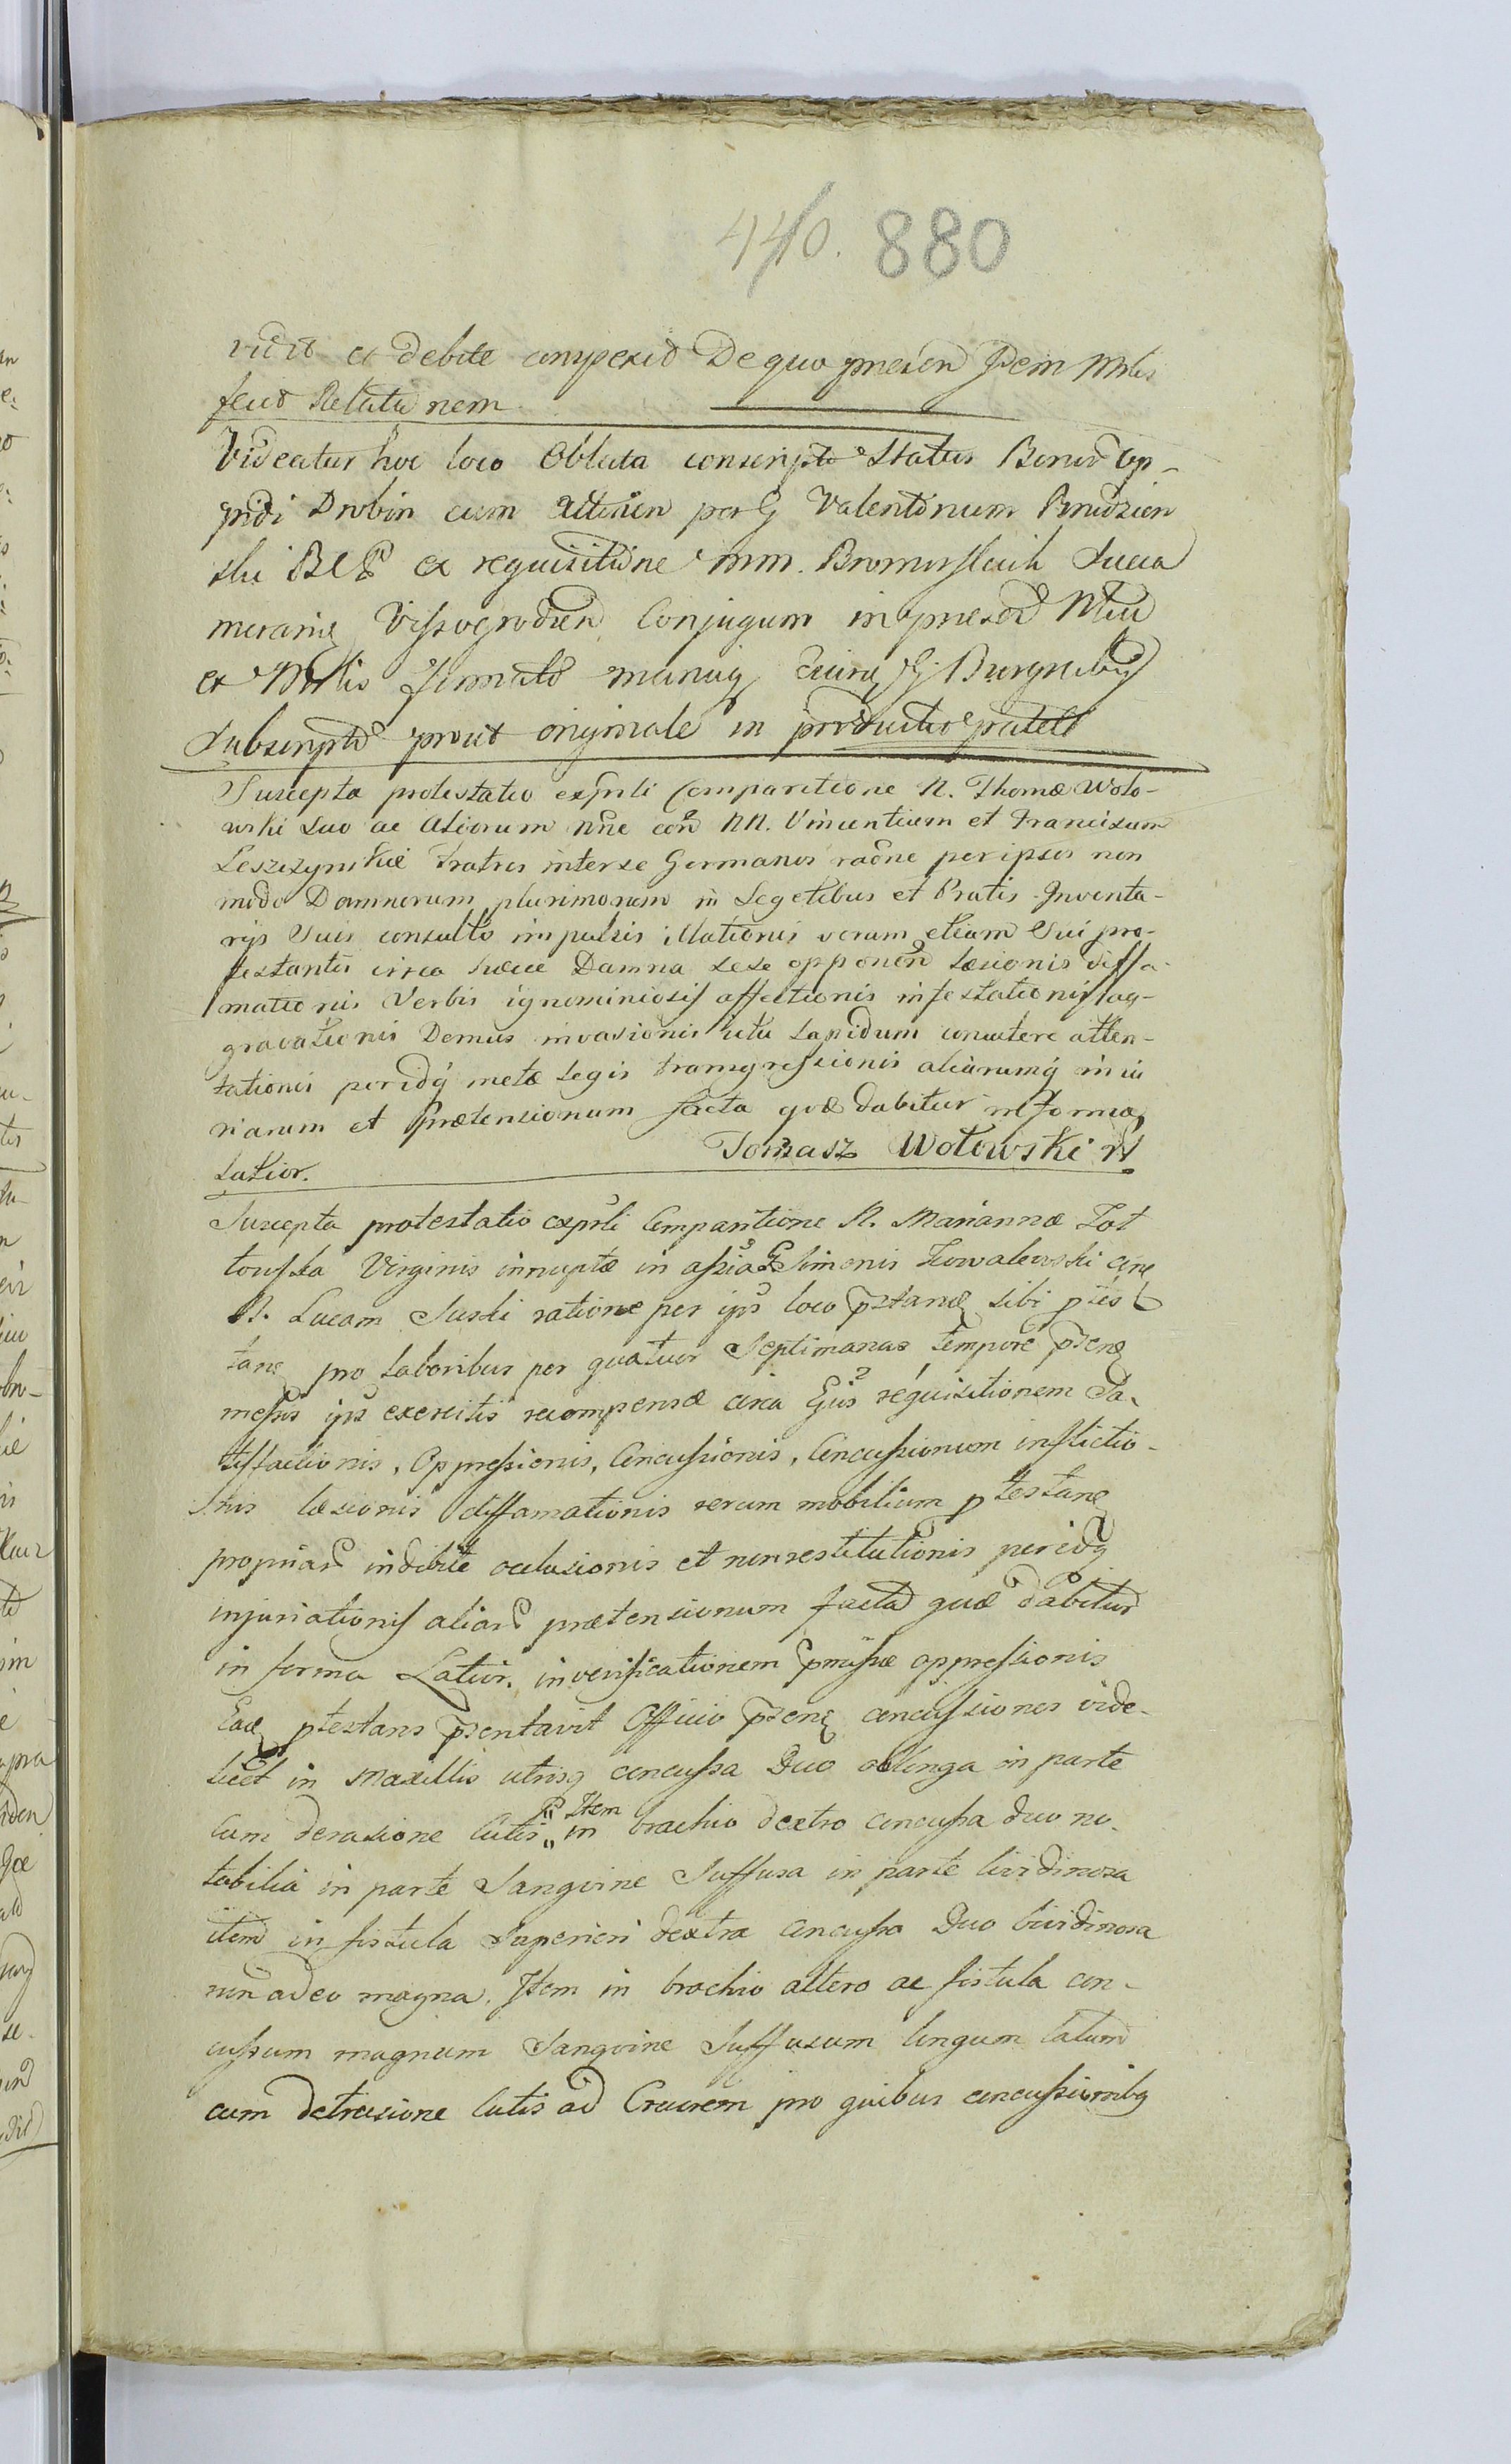 440. 880
vidit et debite comperit De quo praesen Idem Mtlis
fecit Relationem
Videatur hoc loco Oblata conscripto Status Bonor Op-
pidi Drobin cum attinen per G Valentinum Brudzien
ski BCP ex requisitione mm. Bromirskich Succa
meraniæ Vissogrodien Conjugum in praesen Mtu
et Mtlis firmat manuq G Burgrabij
Subscript prout originale in productus patet
Suscepta protestatio exprsli Comparitione N. Thomæ Woło-
wski suo ac aliorum nne con NN. Vincentium et Franciscum
Leszczynskie Fratres inter se Germanos raone per ipsos non
modo Damnorum plurimorum in Segetibus et Pratis Inventa-
rijs Suis consulto impulsis illationis verum etiam Sui pro-
testantis circa hæcce Damna sese opponen læsionis diffa-
mationis Verbis ignominiosis affectionis infestationis ag-
gravationis Domus invasionis ictu Lapidum concutere atten-
tationis peridq metæ Legis transgressionis aliarumq inju
riarum et Prætensionum facta quæ dabitur in forma
Latior.
Tomasz Wołowski
Suscepta protestatio exprsli Comparitione N. Mariannæ Zot
towska Virginis innuptæ in assia G Simonis Kowalewski cone
N. Lucam Suski ratione per ips loco pstanæ sibi ptes
tane pro Laboribus per quatuor Septimanas tempore psenæ
messis ips exercitis recompensæ circa Ejus requisitionem Sa-
tisfactionis, Oppressionis, Concussionis, Concussionum inflictio-
nis læsionis diffamationis rerum mobilium ptestanæ
propriar indebite occlusionis et nonrestitutionis peridq
injuriationis aliar prætensionum facta quæ dabitur
in forma Latior. in verificationem pmissæ oppressionis
Eadæ ptestans psentavit Officio psenæ concussiones vide-
licet in Maxillis utrisq concussa Duo oblonga in parte
Cum derasione Cutis Item in brachio dextro concussa duo no-
tabilia in parte Sangvine Suffusa in parte lividinosa
item in fistula Superiori dextra concussa Duo lividinosa
non adeo magna. Item in brachio altero ac fistula con-
cussum magnum Sangvine Suffusum longum latum
cum detrusione Cutis ad Cruorem pro quibus concussionibq